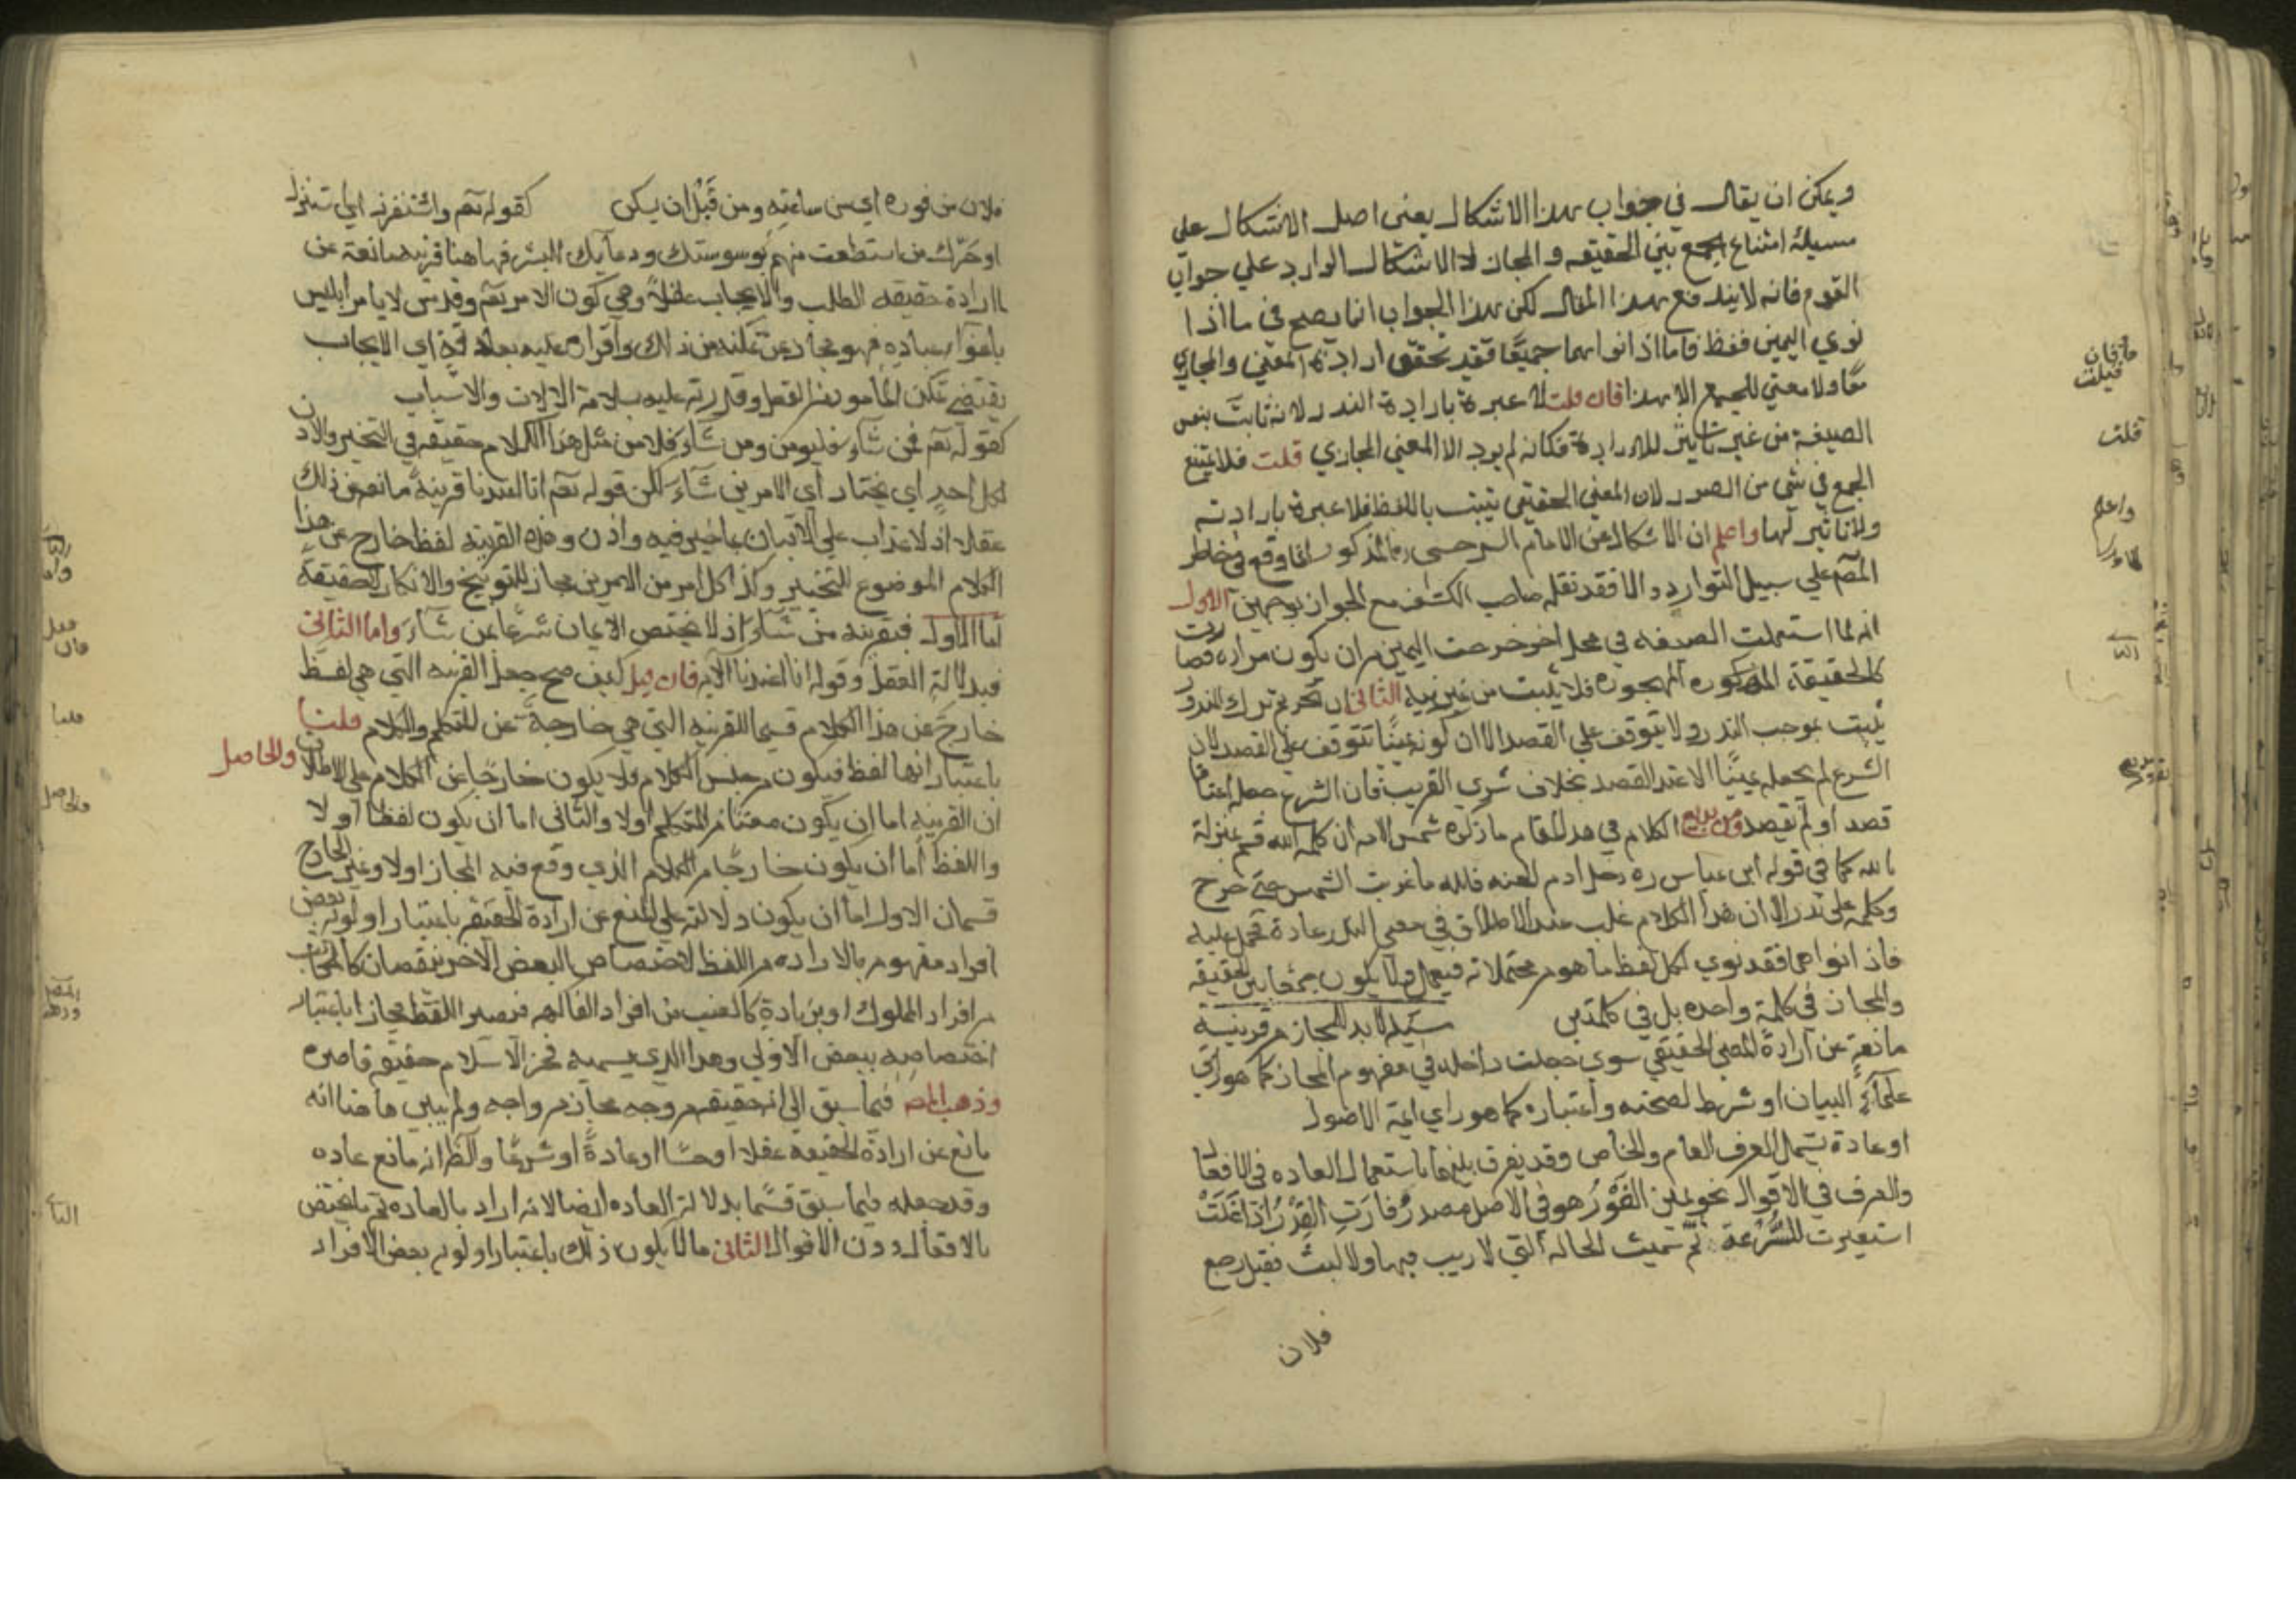 ويمكن ان يقال في جواب هذا الاشكال يعني اصل الاشكال علي
مسيلة امتناع الجمع بين الحقيقه والمجاز لا الاشكال الوارد علي جواب
القوم فانه لا يندفع بهذا المقال لكن هذا الجواب انما يصح في ما اذا
نوي اليمين فقط فاما اذا نواهما جميعًا فقد تحقق ارادة المعني والمجازي
معًا ولا معني للجمع الا هذا فان قلت لا عبرة بارادة النذر لانه ثابت بنفس
الصيغة من غير تاثير للارادة فكانه لم يرد الا المعني المجازي قلت فلا يمتنع
الجمع في شي من الصور لان المعني الحقيقي يثبت باللفظ فلا عبرة بارادته
ولا تاثير لها واعلم ان الاشكال عن الامام السرخسي المذكور انما وقع في خاطر
المصم علي سبيل التوارد والا فقد نقله صاحب الكشف مع الجواز بوجهين الاول
انه لما استعملت الصيغه في محل اخر خرجت اليمين من ان يكون مراده فصارت
كالحقيقة المهجوره فلا يثبت من غير نية الثاني ان تحريم ترك المنذور
يثبت بموجب النذر ولا يتوقف علي القصد الا ان كونه يمينًا يتوقف علي القصد لان
الشرع لم يجعله يمينًا الا عند القصد بخلاف شري القريب فان الشرع جعله اعتاقا
قصد او لم يقصد ومن بديع الكلام في هذا المقام ما ذكره شمس الايمه ان كلمة الله قسم بمنزلة
بالله كما في قوله ابن عباس ره دخل ادم الجنه فلله ما غربت الشمس حتي خرج
وكلمة علي نذر الا ان هذا الكلام غلب عند الاطلاق في معني النذر عادة فحمل عليه
فاذا نواهما فقد نوي لكل لفظ ما هو من محتملاته فيعمل ولا يكون جمعا بين الحقيقه
والمجاز في كلمة واحده بل في كلمتين مسيلة لا بد للمجاز من قرينة
مانعةٍ عن ارادة المعني الحقيقي سوي جعلت داخله في مفهوم المجاز كما هو راي
علمآءِ البيان او شرط لصحته واعتباره كما هو راي ايمة الاصول
او عادة يشمل العرف العام والخاص وقد يفرق بينهما باستعمال العاده في الافعال
والعرف في الاقوال نحو يمين الفَوْرُ هو في الاصل مصدر فارَتِ القِدْرُ اذا غَلَتْ
استعيرت للسُّرْعَة ثم سميت الحاله التي لا ريب فيها ولا لبث فقيل رجع
فلان
فلان من فوره اي من ساعته ومن قَبْل ان يسكن كقوله تعم واستفزز اي استنزل
او حَرِّك من استطعت منهم بوسوستك ودعآيك الشر فهاهنا قرينه مانعة عن
ارادة حقيقه الطلب والايجاب عقلاً وهي كون الامر تعم وقدس لا يامر ابليس
باغوآء عباده فهو مجاز عن تمكنه من ذلك واقراره عليه اي الايجاب
يقتضي تمكن المأمور من الفعل وقدرته عليه بسلامة الالات والاسباب
كقوله تعم فمن شآء فليومن ومن شآء فلا من مثل هذا الكلام حقيقه في التخيير والاذن
لكل احدٍ اي يختار اي الامرين شآء لكن قوله تعم انا اعتدنا قرينةٌ مانعة من ذلك
عقلا اذ لا عذاب علي الاتيان بما خير فيه واذن وهذه القرينه لفظ خارج عن هذا
الكلام الموضوع للتخيير وكذا كل امر من الامرين مجاز للتوبيخ والانكار لا حقيقةً
اما الاول فبقرينه من شآء اذ لا يختص الايمان شرعًا بمن شآء واما الثاني
فبدلالة العقل وقوله انا اعتدنا الآيه فان قيل كيف صح جعل القرينه التي هي لفظ
خارج عن هذا الكلام قسيما للقرينه التي هي خارجةٌ عن المتكلم والكلام قلنا
باعتبار انها لفظ فيكون من جنس الكلام فلا يكون خارجًا عن الكلام علي الاطلاق والحاصل
ان القرينه اما ان يكون معني من المتكلم اولا والثاني اما ان يكون لفظا اولا
واللفظ اما ان يكون خارجًا من الكلام الذي وقع فيه المجاز اولا وغير الخارج
قسمان الاول اما ان يكون دلالته علي المنع عن ارادة الحقيقه باعتبار اولويه بعض
افراد مفهومه بالاراده من اللفظ لاختصاص البعض الاخر بنقصان كالمكاتب
من افراد المملوك او بزيادةٍ كالعنب من افراد الفاكهه فيصير اللفظ مجازا باعتبار
اختصاصه ببعض الاولي وهذا الذي يسميه فخر الاسلام حقيقه قاصره
وذهب المص فيما سبق الي انه حقيقه من وجه مجاز من وجه ولم يبين هاهنا انه
مانع عن ارادة الحقيقه عقلا او حسًا او عادةً او شرعًا والظ انه مانع عاده
وقد جعله فيما سبق قسمًا بدلالة العاده ايضا الا انه اراد بالعاده ثم ما يختص
بالافعال دون الاقوال الثاني ما لا يكون ذلك باعتبار اولويه بعض الافراد
فان قلت
قلت
واعلم